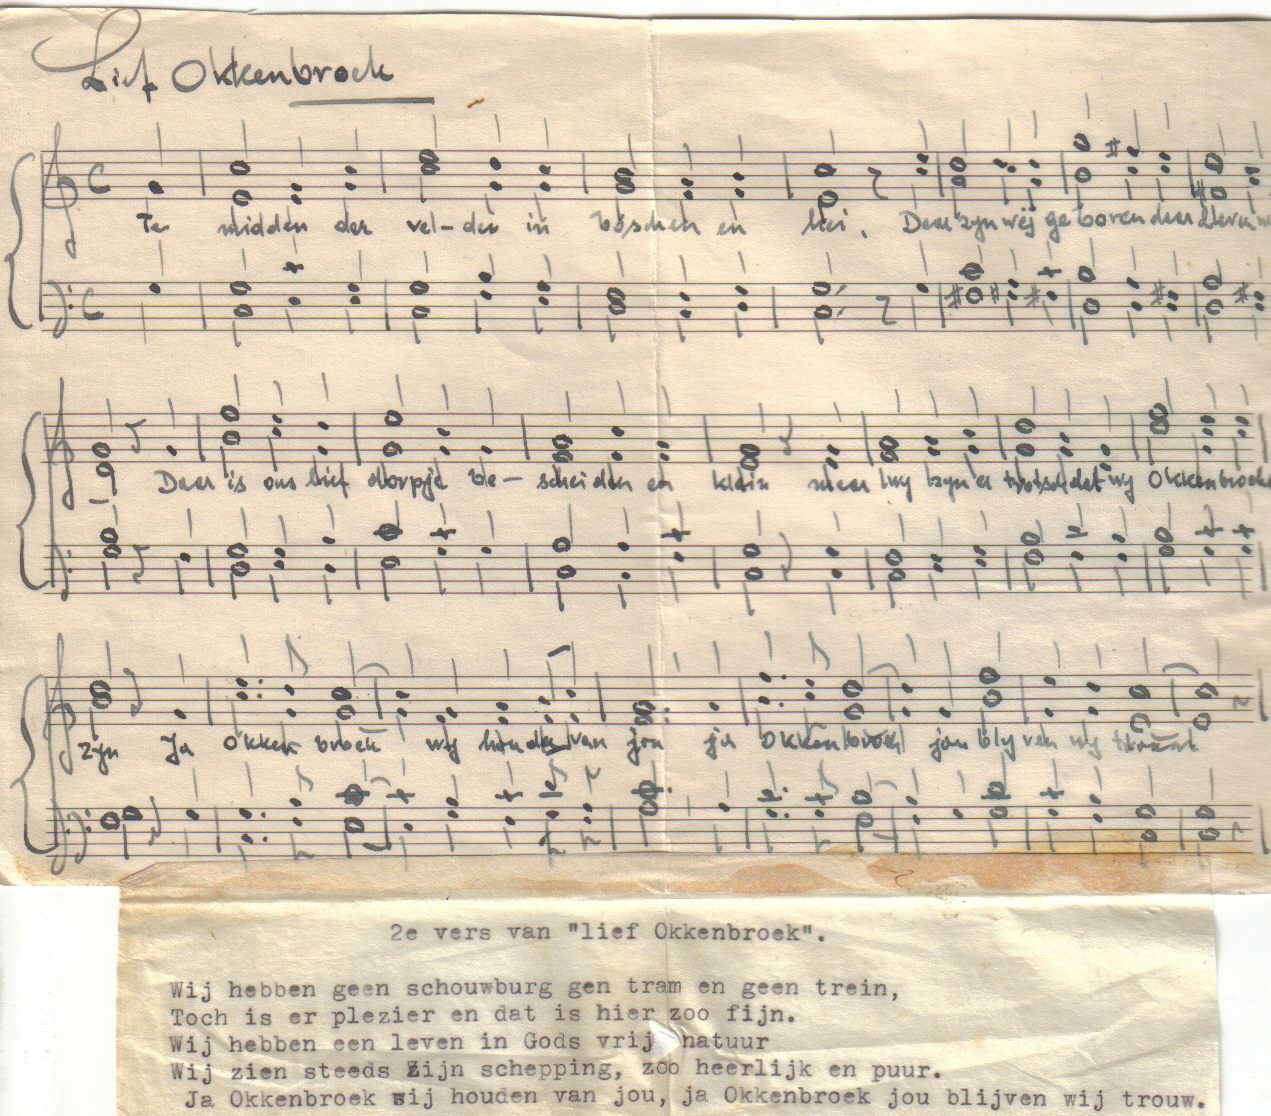 Lief Okkenbroek
Te midden der vel-den in bosschen en hei, Daar zyn wij geboren daar leven
Daar is ons lief dorpje be- scheiden en klein maar wy zyn er trotsch dat wy Okkenbroeks
zyn Ja Okken broek wij houden van jou ja Okkenbroek jou bly ven wij trouw
2e vers van "lief Okkenbroek".
Wij hebben geen schouwburg gen tram en geen trein,
Toch is er plezier en dat is hier zoo fijn.
Wij hebben een leven in Gods vrij natuur
Wij zien steeds Zijn schepping, zoo heerlijk en puur.
Ja Okkenbroek wij houden van jou, ja Okkenbroek jou blijven wij trouw.